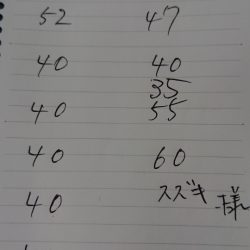 52 47
40 40
35
40 55
40 60
40 スズキ様